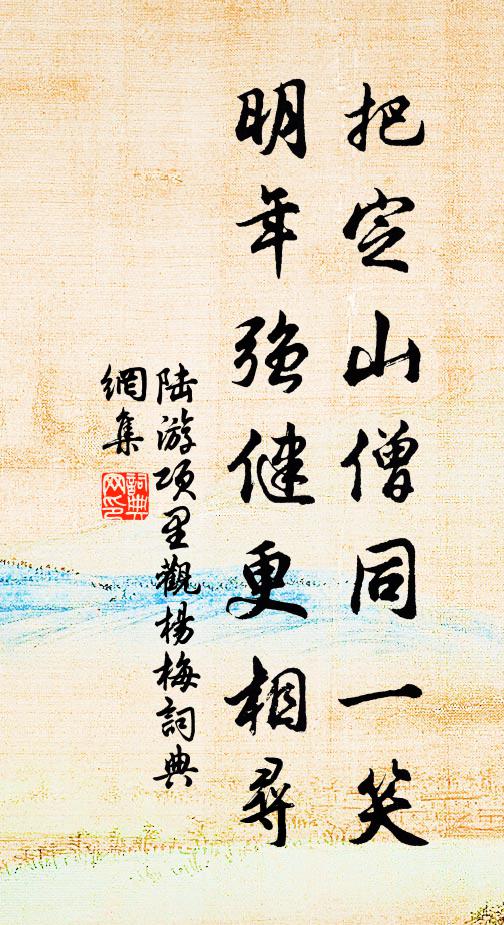 把定山僧同一笑
明年強健更相尋
陆游项里觀楊梅詞典
網集
詞典
网印